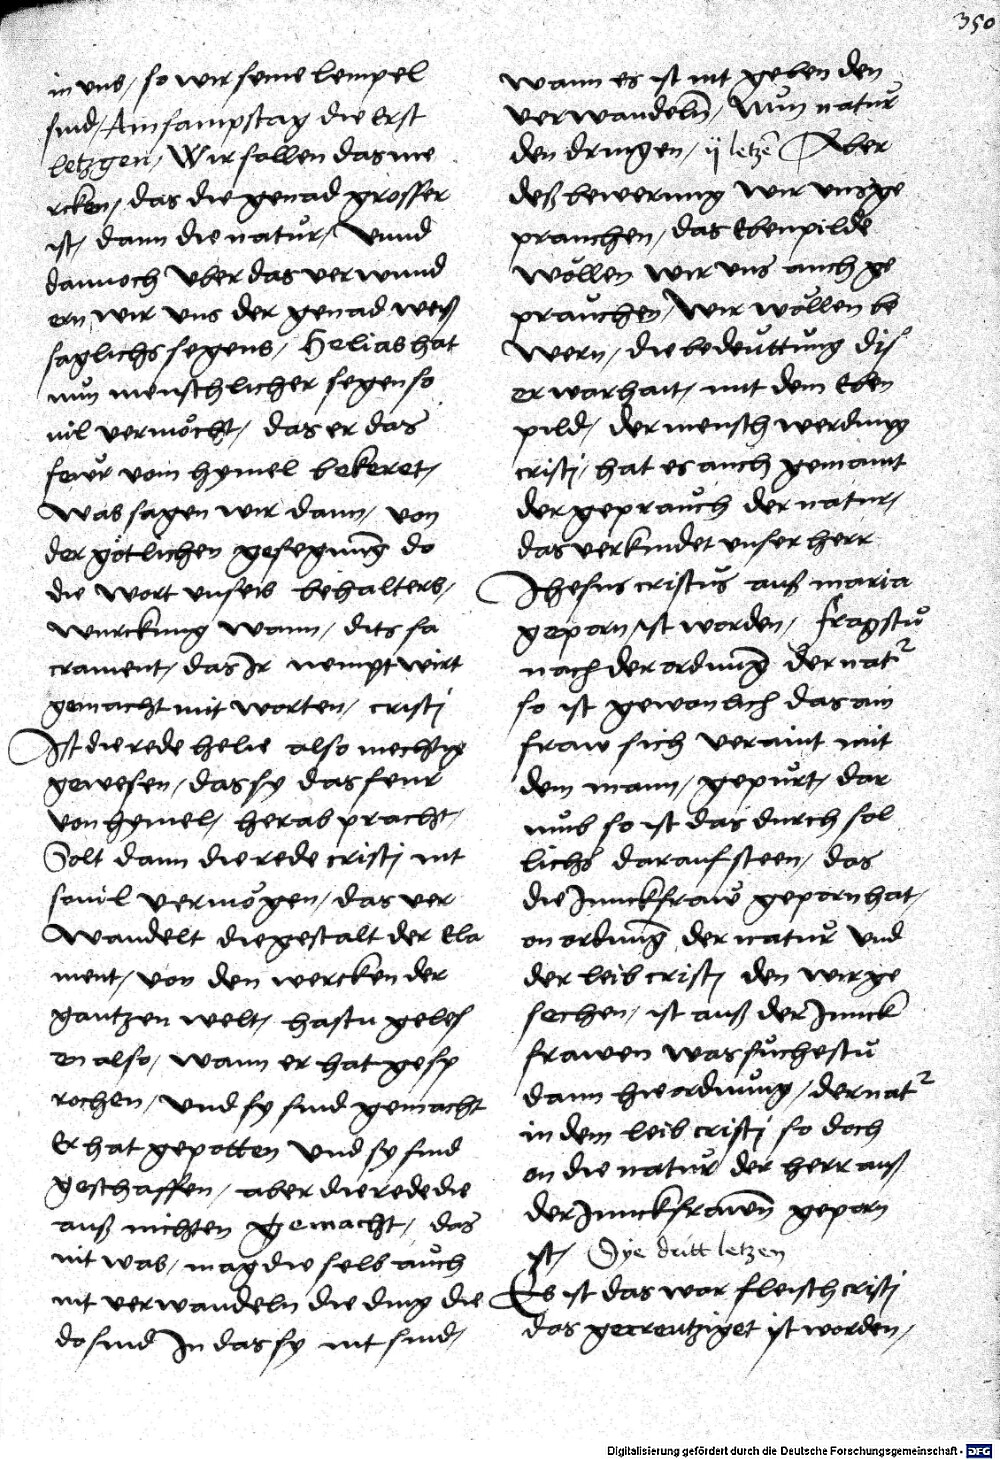 350
in uns, so wir seine tempel
sind, Am sampstag die Erst
letzgen, Wir sollen das me
rcken, das die genad grosser
ist, dann die natür, Vnnd
dannoch vber das verwund
ern wir vns der genad weiß
saglichs segens, Helias hat
nün menschlicher segen so
uil vermöcht, das er das
feür vom hymel bekeret,
Was sagen wir dann, von
der götlichen gesegnung do
die wort vnsers behalters,
würckung wann, dits sa
crament, das Ir nempt wirt
gemacht mit worten, cristi
Ist die rede helie also mechtig
gewesen, das sy das feur
von hymel, herab pracht,
Solt dann die rede cristi nit
souil vermögen, das ver
wandelt die gestalt der Ela
ment, von den wercken der
gantzen welt, hastu geles
en also, wann er hat gesp
rochen, Vnd sy sind gemacht
Er hat gepotten Vnd sy sind
geschaffen, aber die rede die
auß nichten gemacht, das
nit was, mag die selb auch
nit verwandeln die ding die
do sind In das sy nit sind,
wann es ist nit geben den
verwandeln, Nun natür
den dringen, ij letzen Aber
deß bewerung wir vns ge
prauchen, das Ebenpilde
wöllen wir vns auch ge
prauchen, Wir wöllen be
wern, die bedeüttung dis
er warhait, mit dem Eben
pild, der mensch werdung
cristi, hat es auch gemaint
der geprauch der natur,
das verkündet vnser herr
Ihesus cristus auß maria
geporn, ist worden, fragstu
nach der ordnung der nat
so ist gewonlich das ain
fraw sich veraint mit
dem mann, gepürt, dar
umb so ist das durch söl
lichs darauf steen, das
die Junckfraw geporn hat,
on ordnung der natür Vnd
der leib cristi den wir ge
sechen, ist auß der Junck
frawen was süchestu
dann hie ordnung, der nat
in dem leib cristi so doch
on die natür der herr auß
der Junckfrawen geporn
ist, Dye dritt letzen
Es ist das war fleisch cristi
das gecreutziget ist worden,
Digitalisierung gefördert durch die Deutsche Forschungsgemeinschaft - DFG